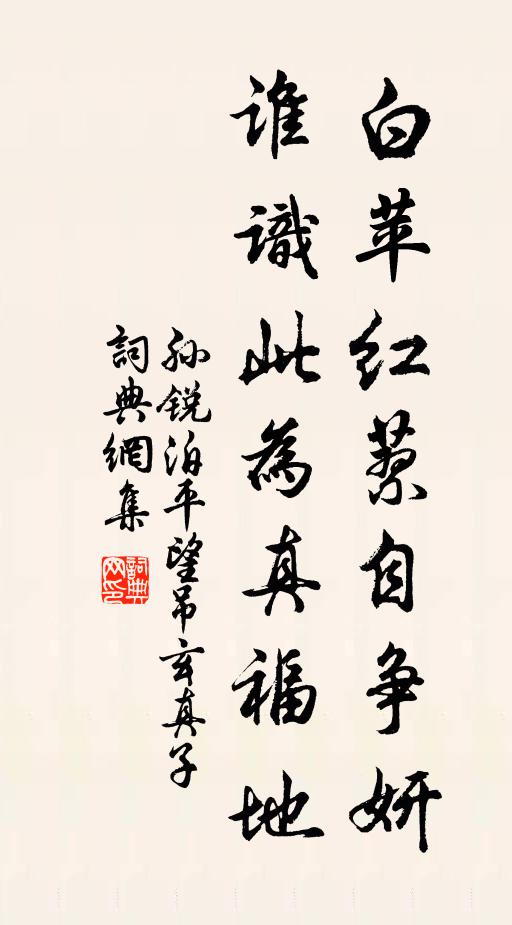 白苹红蓼自争妍
谁識此為真福地
孙锐泊平望吊玄真子
詞典網集
詞典網印